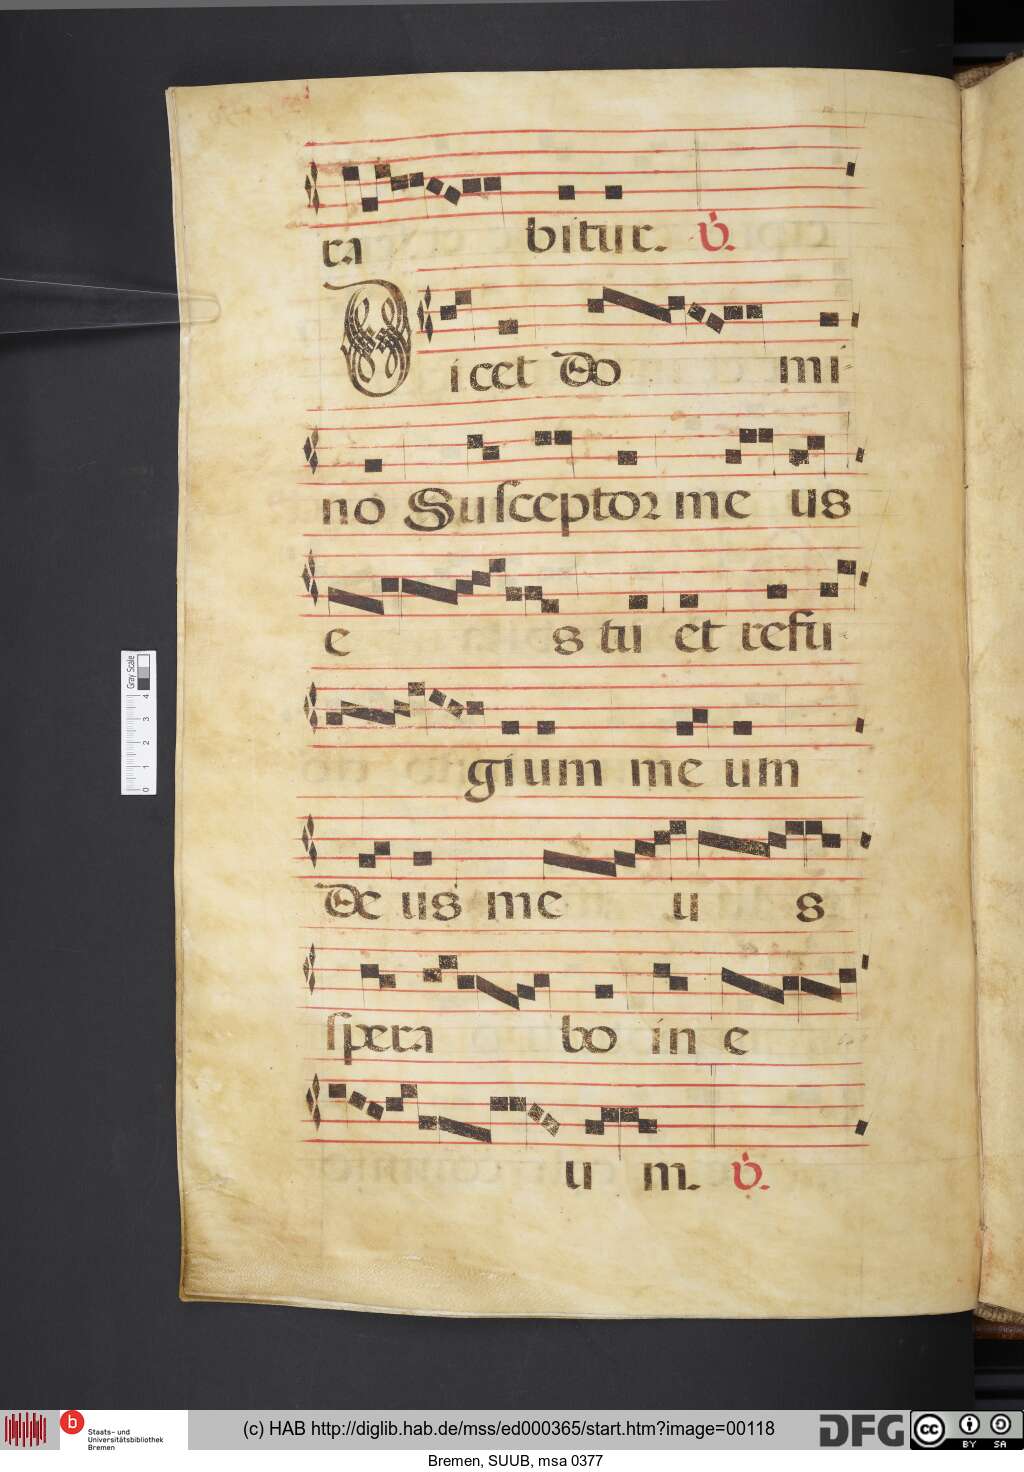 ra bitur. V.
Dicet Do mi
no Susceptor me us
e s tu et refu
gium me um
De us me u s
spera bo in e
u m. V.
Gray Scale
0 1 2 3 4
b Staats- und Universitätsbibliothek Bremen
(c) HAB http://diglib.hab.de/mss/ed000365/start.htm?image=00118
DFG
cc BY SA
Bremen, SUUB, msa 0377